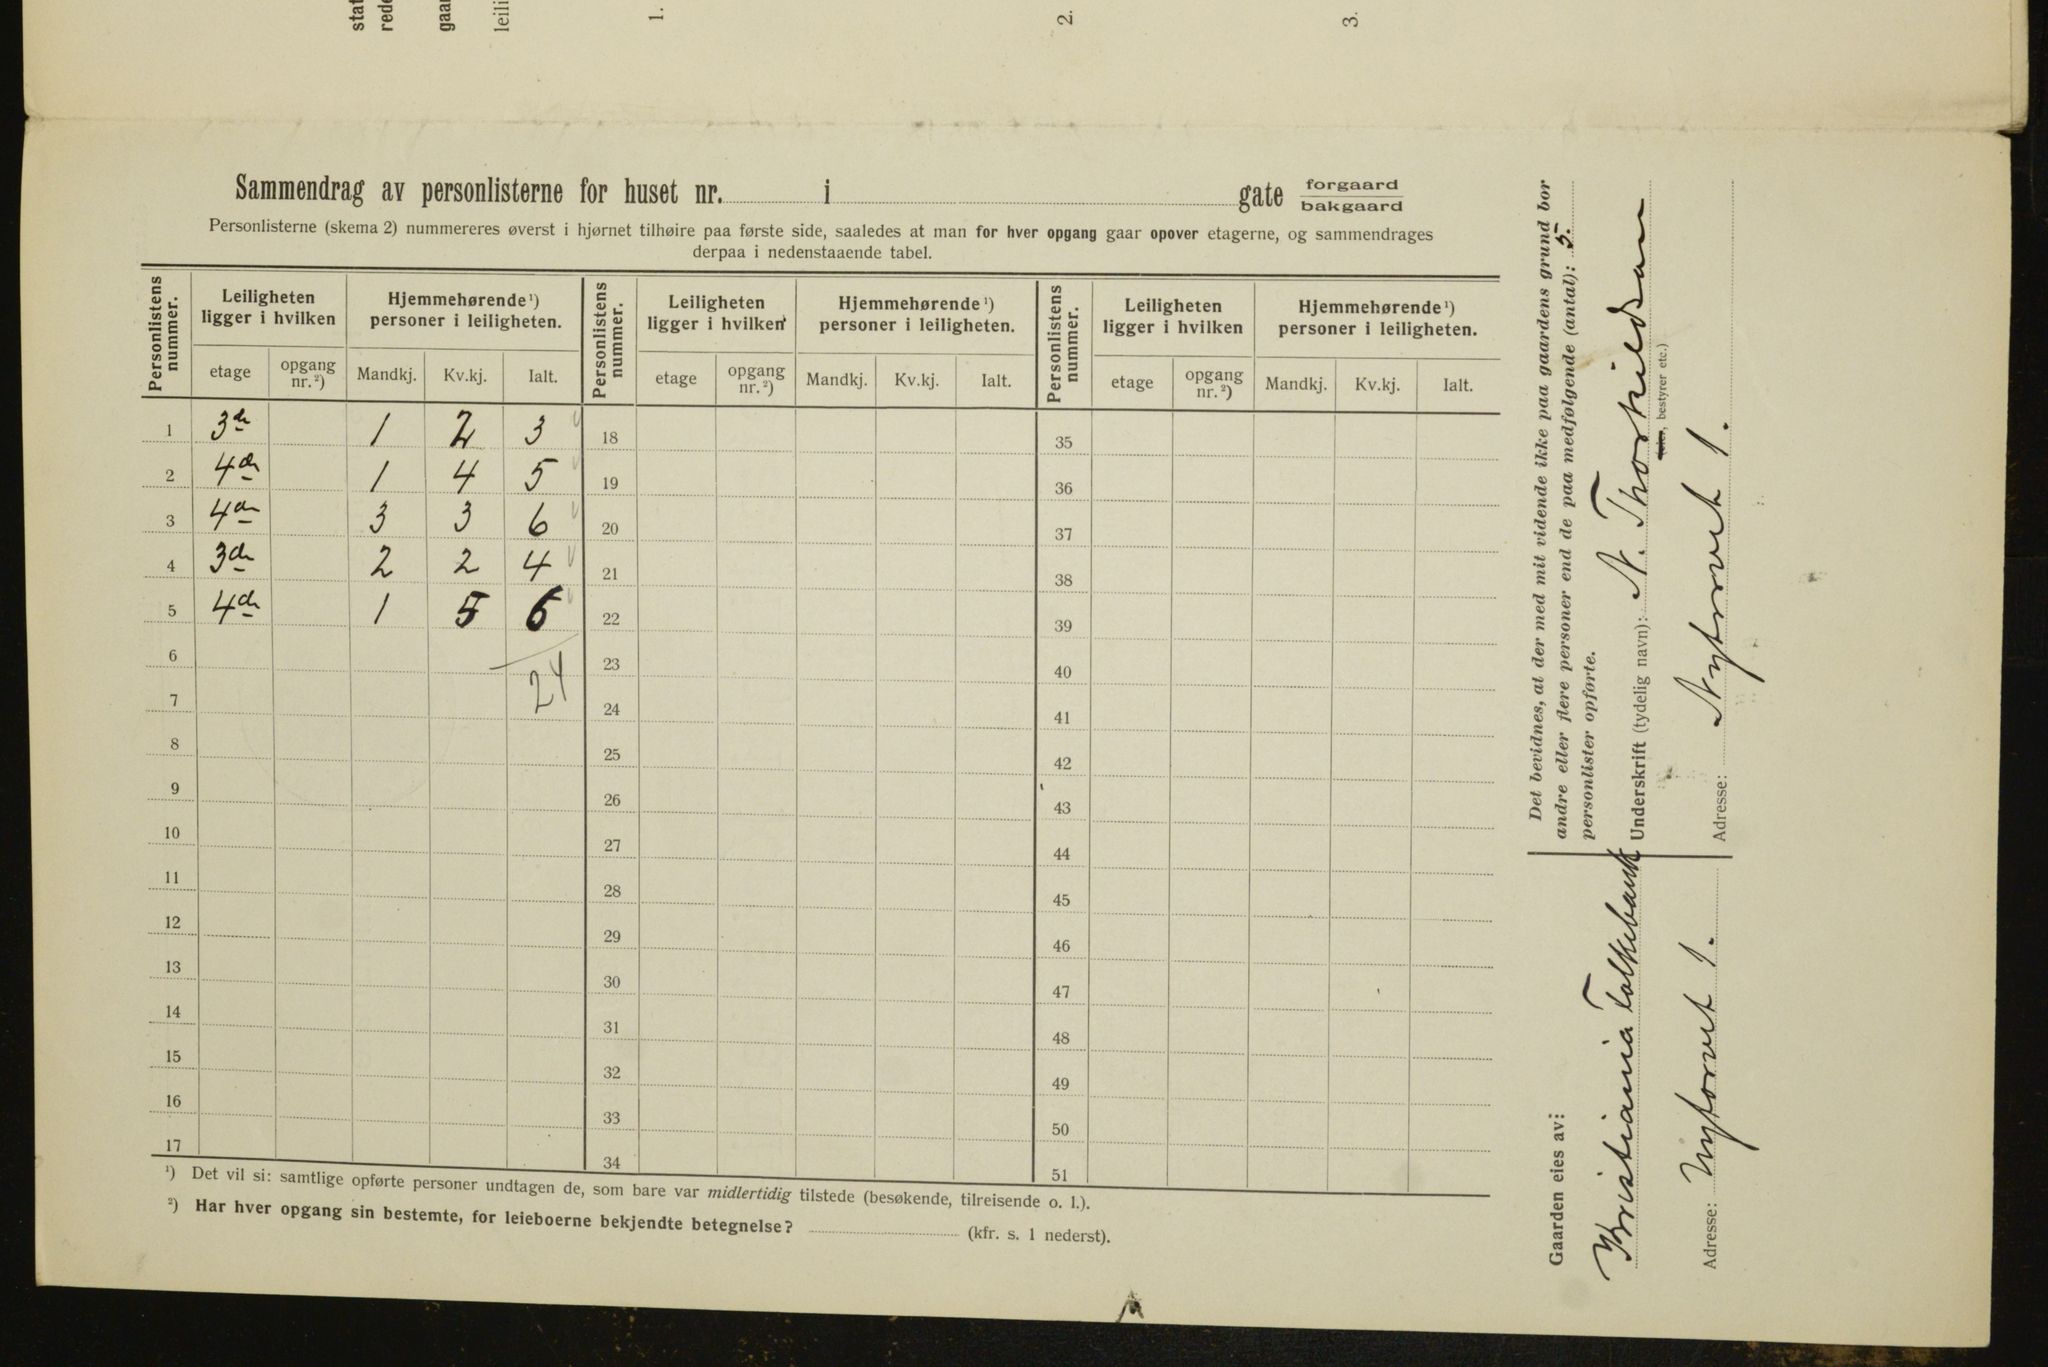 stat
rede
gaar
leili
1.
2.
3.
Sammendrag av personlisterne for huset nr. i gate forgaard
bakgaard
Personlisterne (skema 2) nummereres øverst i hjørnet tilhøire paa første side, saaledes at man for hver opgang gaar opover etagerne, og sammendrages
derpaa i nedenstaaende tabel.
Personlistens nummer. Leiligheten ligger i hvilken Hjemmehørende ¹) personer i leiligheten. Personlistens nummer. Leiligheten ligger i hvilken Hjemmehørende ¹) personer i leiligheten. Personlistens nummer. Leiligheten ligger i hvilken Hjemmehørende ¹) personer i leiligheten.
etage opgang nr. ²) Mandkj. Kv.kj. Ialt. etage opgang nr. ²) Mandkj. Kv.kj. Ialt. etage opgang nr. ²) Mandkj. Kv.kj. Ialt.
1 3de 1 2 3 18 35
2 4de 1 4 5 19 36
3 4de 3 3 6 20 37
4 3de 2 2 4 21 38
5 4de 1 5 6 22 39
6 23 40
24
7 24 41
8 25 42
9 26 43
10 27 44
11 28 45
12 29 46
13 30 47
14 31 48
15 32 49
16 33 50
17 34 51
¹) Det vil si: samtlige opførte personer undtagen de, som bare var midlertidig tilstede (besøkende, tilreisende o. l.).
²) Har hver opgang sin bestemte, for leieboerne bekjendte betegnelse? (kfr. s. 1 nederst).
Gaarden eies av:
Kristiania Folkebank
Adresse: Nytorvet 1.
Det bevidnes, at der med mit vidende ikke paa gaardens grund bor
andre eller flere personer end de paa medfølgende (antal): 5.
personlister opførte.
Underskrift (tydelig navn): N. Thorkildsen
, bestyrer etc.)
Adresse: Nytorvet 1.